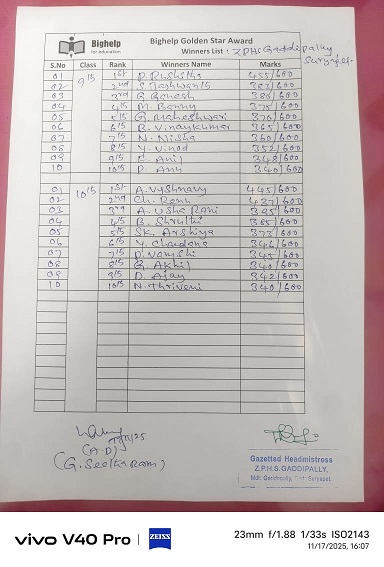 Bighelp
for education
Bighelp Golden Star Award
Winners List : ZPHS Gaddipally
Suryapet
S.No Class Rank Winners Name Marks
01 9th 1st P. Rushitha 455/600
02 2nd S. Jashwanth 383/600
03 3rd G. Ganesh 380/600
04 4th M. Benny 375/600
05 5th G. Maheshwari 370/600
06 6th B. Vinaykumar 365/600
07 7th N. Nisha 360/600
08 8th Y. Vinod 352/600
09 9th 348/600
10 10th P. 340/600
01 10th 1st A. Vyshnavy 445/600
02 2nd Ch. 427/600
03 3rd A. Usha Rani 395/600
04 4th B. Shruthi 385/600
05 5th SK. Arshiya 373/600
06 6th Y. Chandana 346/600
07 7th D. Vamshi 345/600
08 8th G. Akhil 340/600
09 9th D. Ajay 342/600
10 10th N. Thriveni 340/600
(A D)
(G. Seetharam)
Gazetted Headmistress
Z.P.H.S. GADDIPALLY,
Mdl: Garidepally, Dist: Suryapet.
vivo V40 Pro | ZEISS
23mm f/1.88 1/33s ISO2143
11/17/2025, 16:07